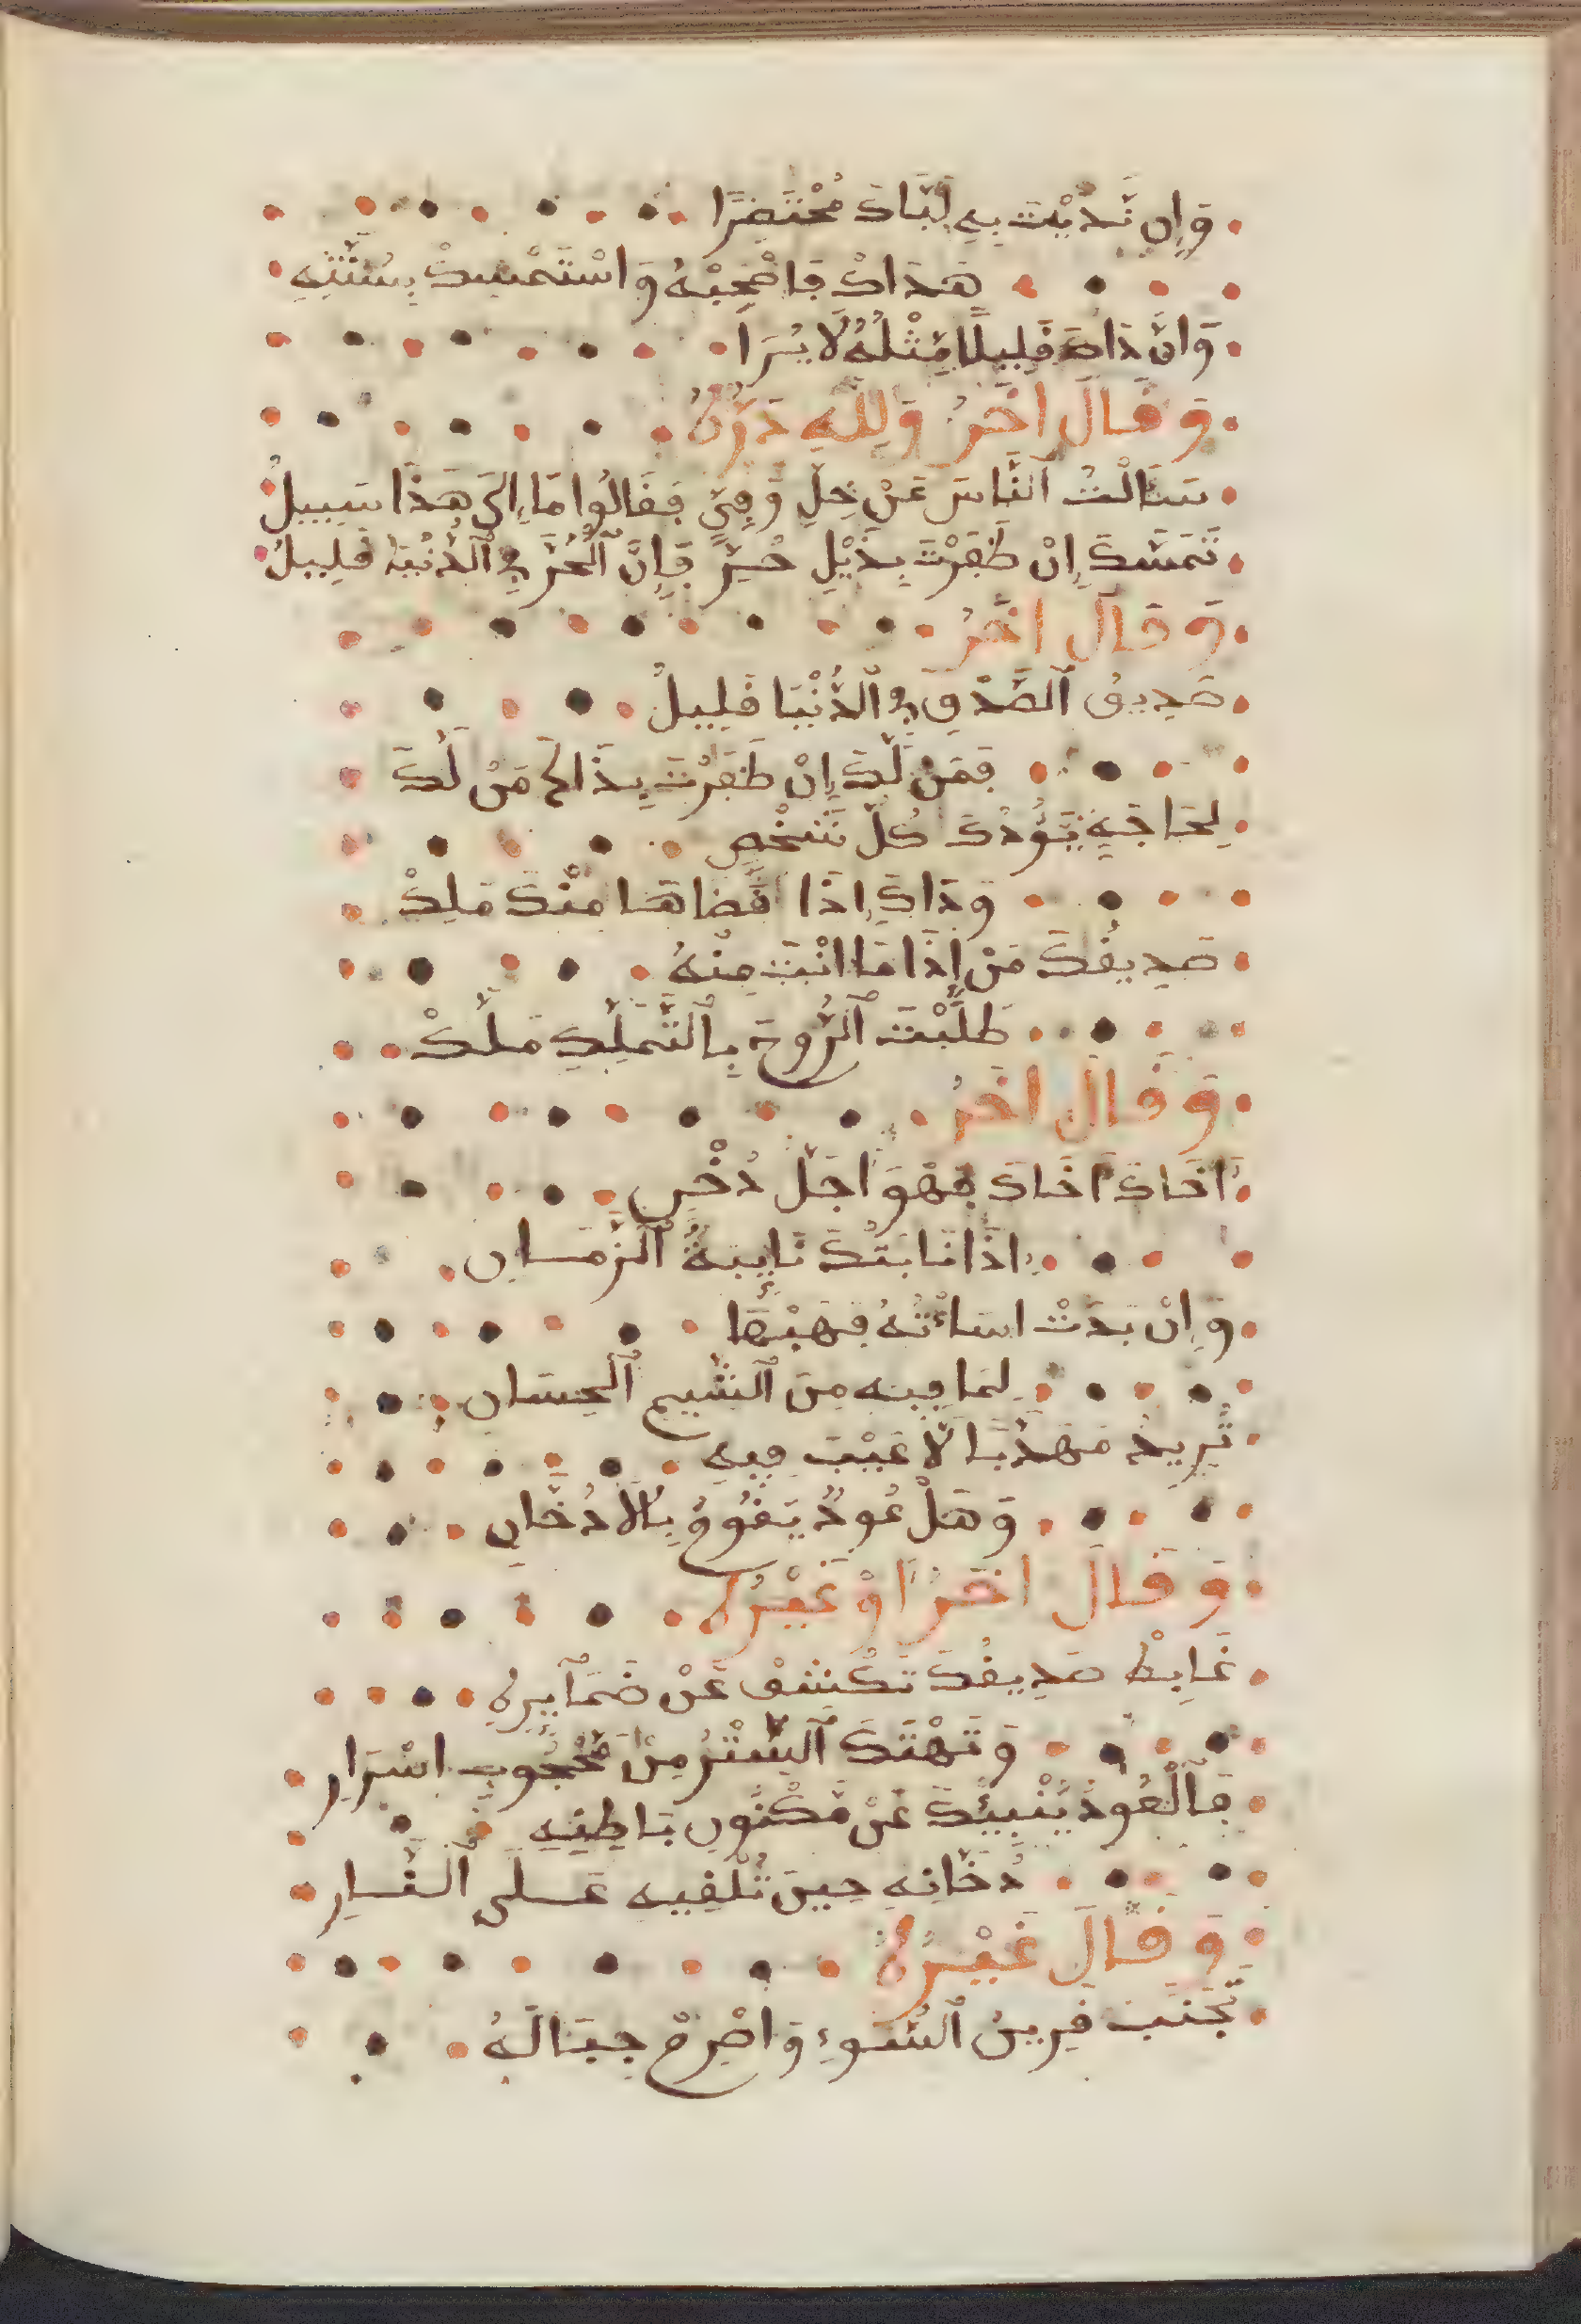 وَإِن نَّدَيْتَ بِهِ لَبَّاكَ مُحْتَضِرًا
هَذَاكَ فَاصْحَبْهُ وَاسْتَمْسِكْ بِسُنَّتِهِ
وَإِنَّ ذَاكَ قَلِيلًا مِّثْلُهُ لَا يُرَا
وَقَالَ اخَرُ وَلِلَّهِ دَرُّهُ
سَأَلْتُ النَّاسَ عَنْ خِلٍّ وَفِيٍّ فَقَالُوا مَا إِلَى هَذَا سَبِيلُ
تَمَسَّكْ إِنْ ظَفِرْتَ بِذَيْلِ حُرٍّ فَإِنَّ الْحُرَّ فِي الدُّنْيَا قَلِيلُ
وَقَالَ اخَرُ
صَدِيقُ الصِّدْقِ فِي الدُّنْيَا قَلِيلُ
فَمَن لَّكَ إِنْ ظَفِرْتَ بِذَاكَ مَن لَّكَ
لِحَاجَةٍ يَوَدُّكَ كُلُّ شَخْصٍ
وَذَاكَ إِذَا قَضَاهَا مِنْكَ مَلَّكْ
صَدِيقُكَ مَنْ إِذَا مَا انْتَ مِنْهُ
طَلَبْتَ الرُّوحَ بِالتَّمْلِكِ مَلَّكْ
وَقَالَ اخَرُ
أَخَاكَ أَخَاكَ فَهْوَ أَجَلُّ ذُخْرٍ
إِذَا نَابَتْكَ نَايِبَةُ الزَّمَانِ
وَإِنْ بَدَتْ اسَاءَتُهُ فَهَبْهَا
لِمَا فِيهِ مِنَ الشِّيَمِ الْحِسَانِ
تُرِيدُ مُهَذَّبًا لَا عَيْبَ فِيهِ
وَهَلْ عُودٌ يَفُوحُ بِلَا دُخَّانِ
وَقَالَ اخَرُ أَوْ غَيْرُهُ
غَايِظْ صَدِيقَكَ تَكْشِفْ عَنْ ضَمَايِرِهِ
وَتَهْتِكَ السِّتْرَ مِنْ مَحْجُوبِ اسْرَارِ
فَالْعُودُ يُنْبِيكَ عَنْ مَكْنُونِ بَاطِنِهِ
دُخَّانُهُ حِينَ تُلْقِيهِ عَلَى النَّارِ
وَقَالَ غَيْرُهُ
تَجَنَّبْ قَرِينَ السُّوءِ وَاصْرِمْ حِبَالَهُ